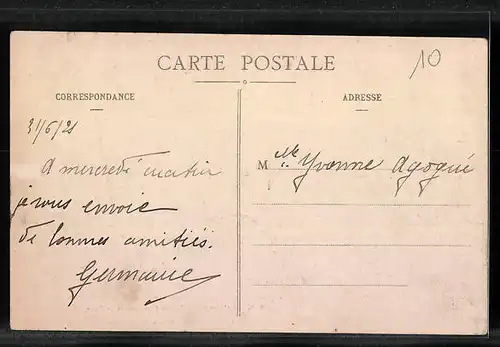 CARTE POSTALE
10
CORRESPONDANCE
ADRESSE
31/6/21
A mercredi matin
je vous envoie
de bonnes amitiés.
Germaine
M lle Yvonne Agogué